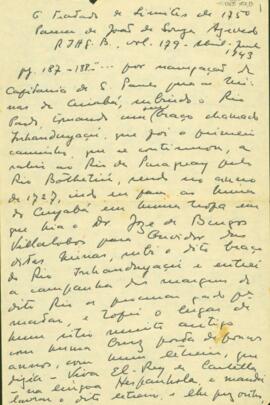 O Tratado de Limites de 1750
Panema de João de Souza Azevedo
R.I.H.G.B., vol. 179 - Abril-Junho
1943
pg. 187-188 - ... por navegação da
Capitania de S. Paulo para as Mi-
nas de Cuiabá, subindo o Rio
Pardo, tomando um braço chamado
Inhanduyaçú, que foi o primeiro
caminho, que se continuou, a
sahir no Rio de Paraguay pelo
Rio Bothetiú, sendo no anno
de 1727, indo eu para as minas
de Cuyabá em huma tropa em
que hia o Dr José de Burgos
Villalobos para Ouvidor das
ditas minas, subi o dito braço
do Rio Inhanduyaçú e entrei
a campanha das margens do
dito Rio
matar, e topei o lugar de
hum sitio muito antigo
com huma Cruz
annos, com hum letreiro, que
dizia - Viva El-Rey de Castella
na lingua Hespanhola e mandei
o dito letreiro, e lhe puz outro,